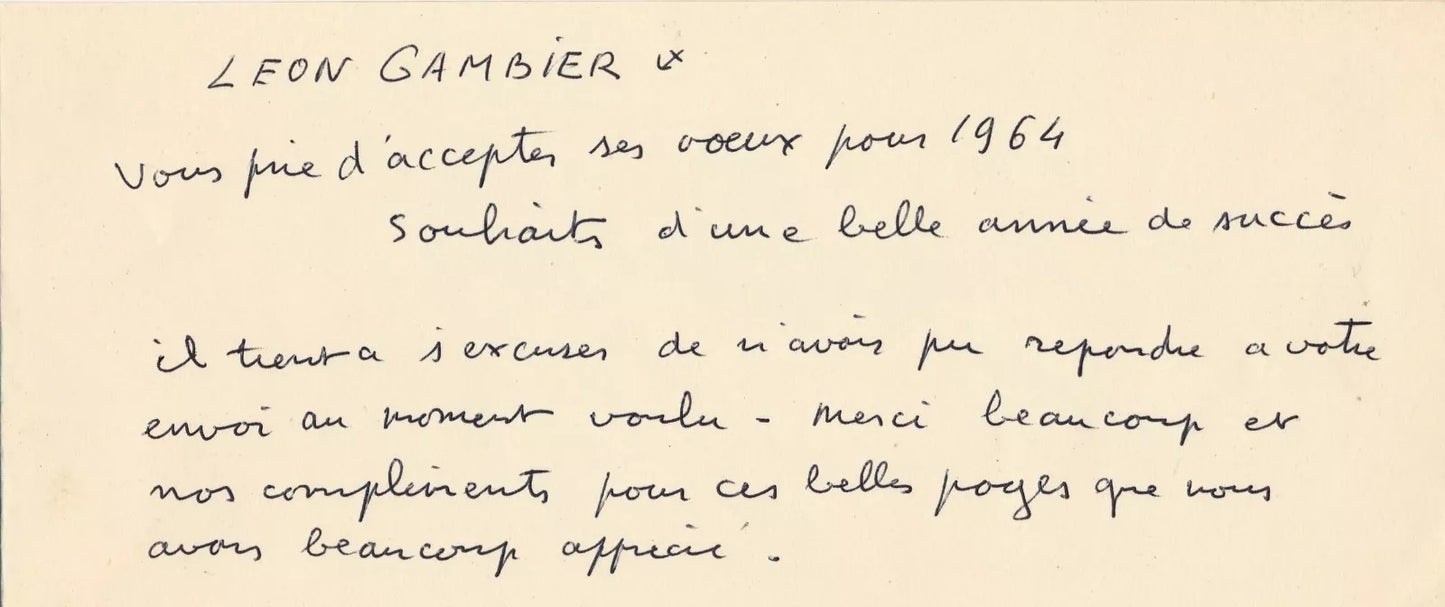 LEON GAMBIER
Vous prie d'accepter ses voeux pour 1964
Souhaits d'une belle année de succès
il tient a s'excuser de n'avoir pu repondre a votre
envoi au moment voulu - Merci beaucoup et
nos compliments pour ces belles pages que nous
avons beaucoup apprécié.